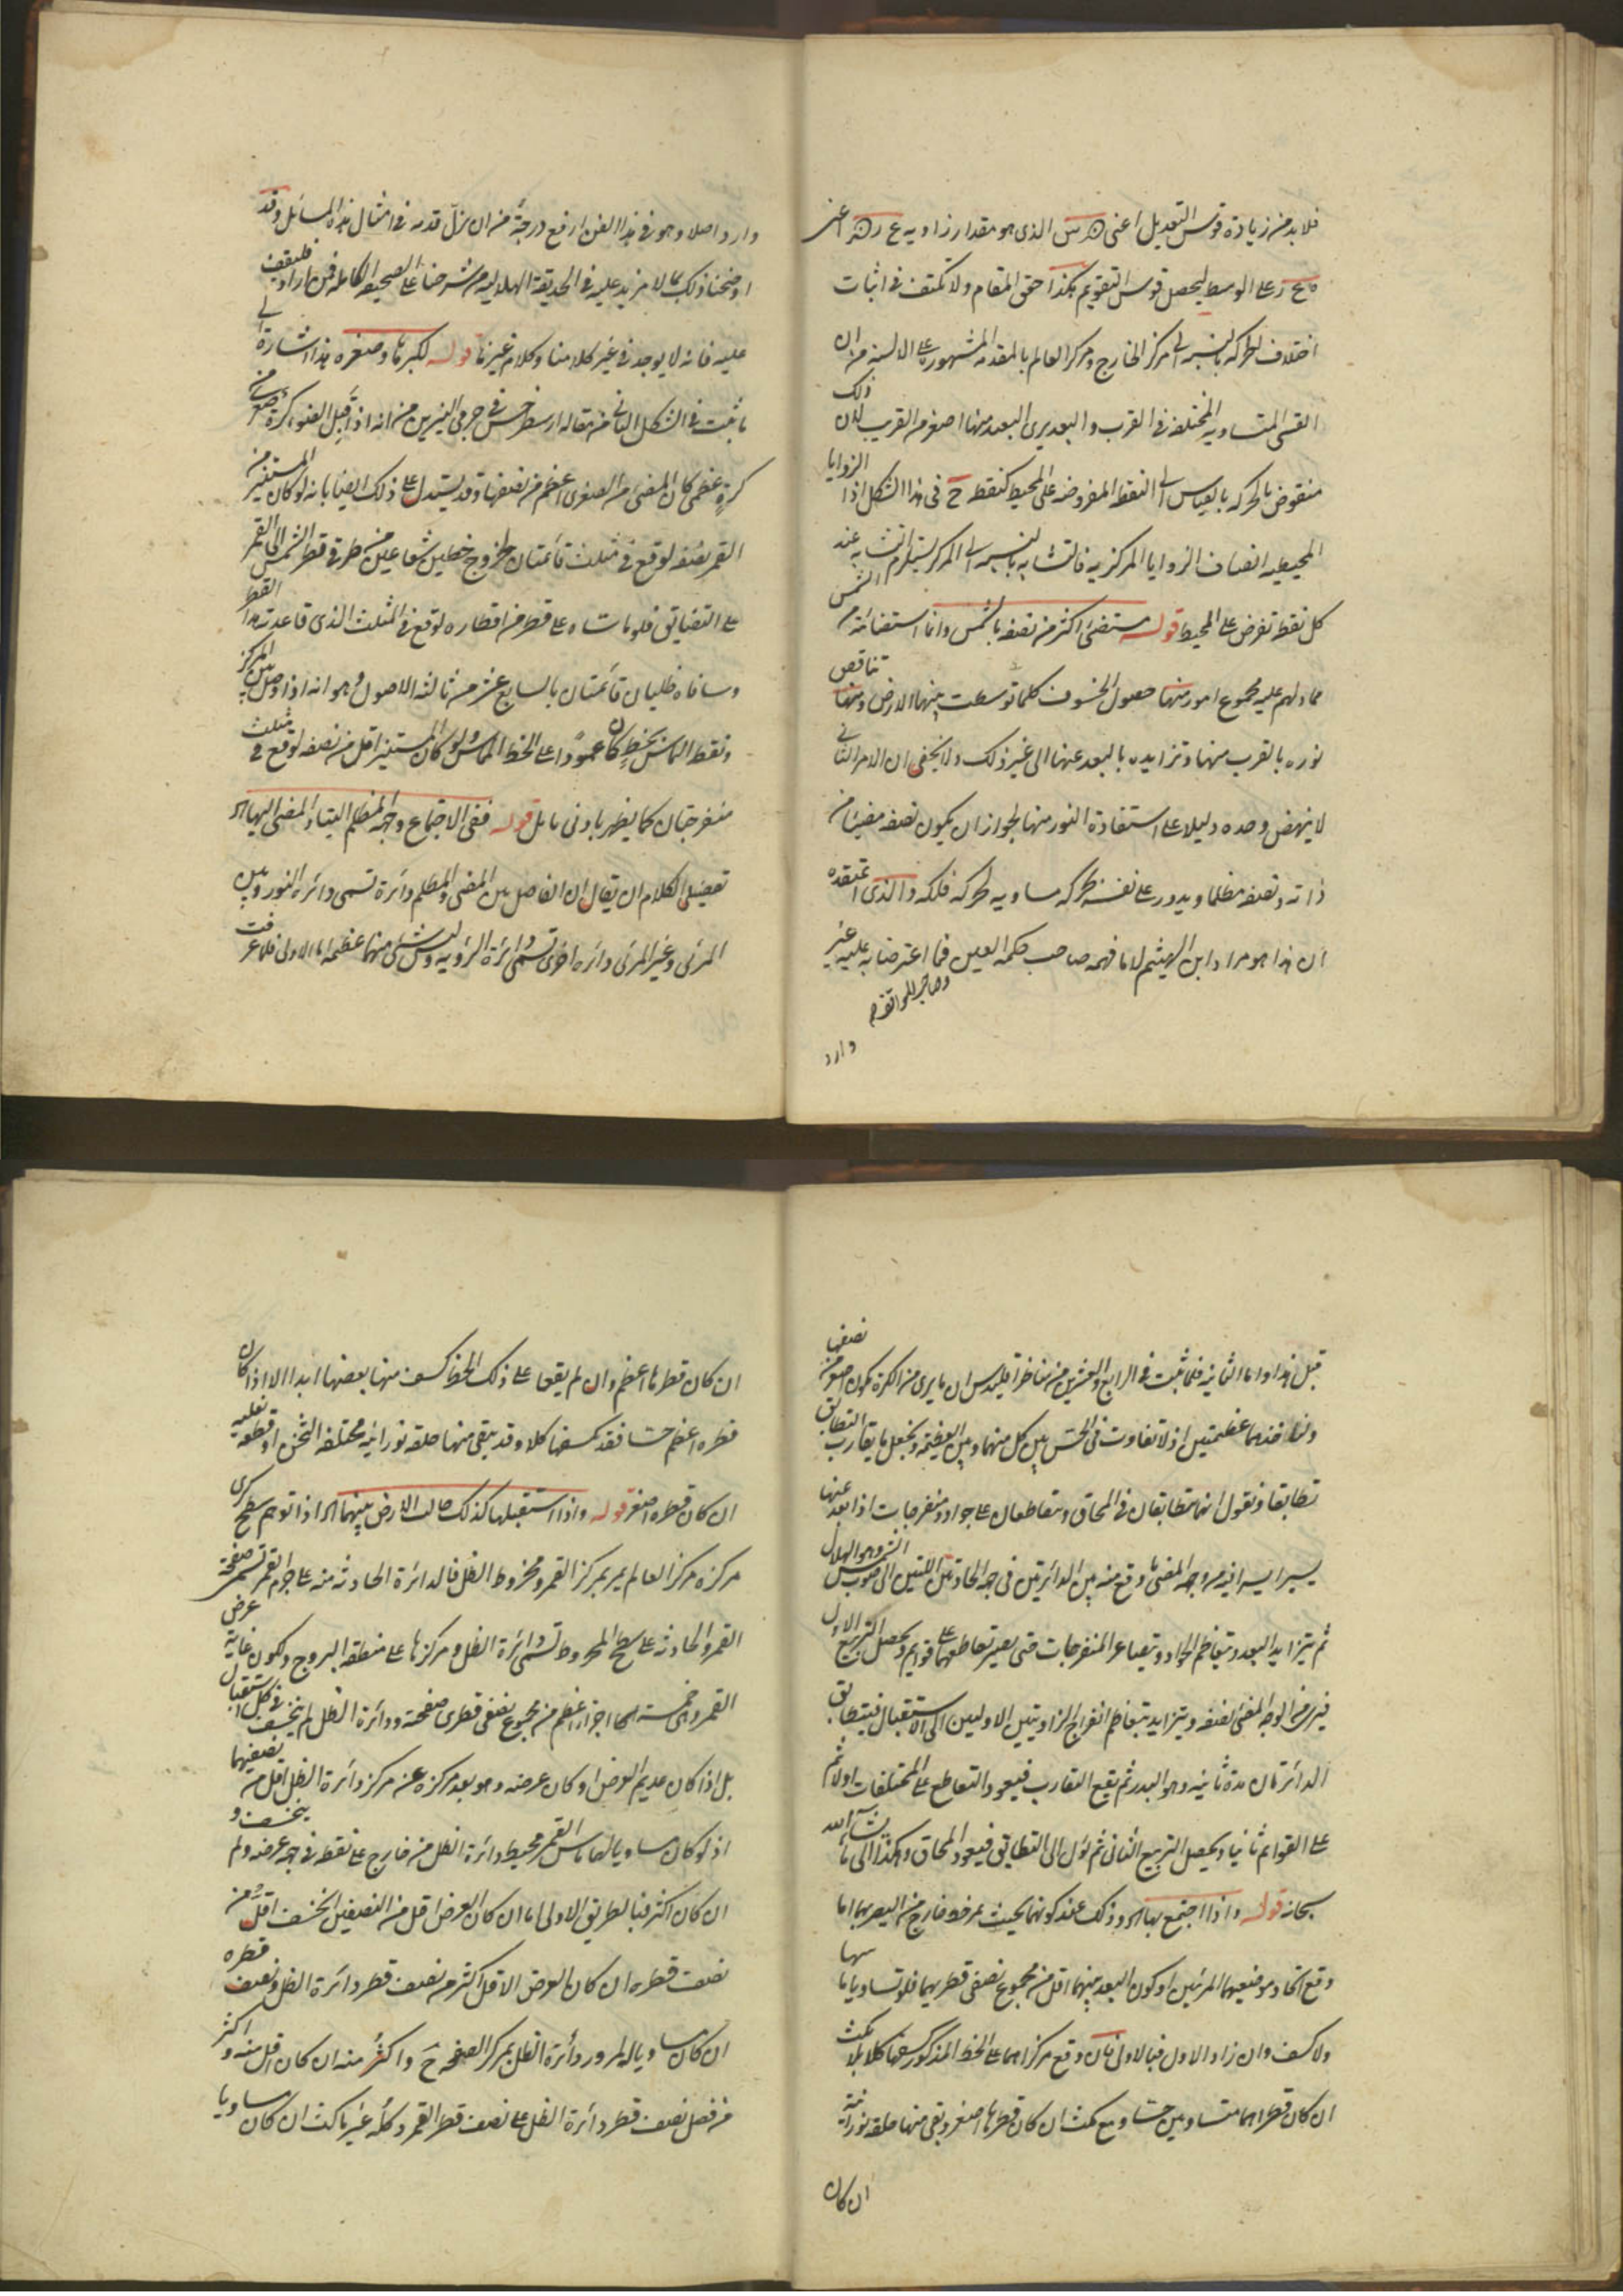 فلا بد من زيادة قوس التعديل اعنى الذى هو مقدار زاويه ع ر اعنى
ه ع ر على الوسط ليحصل قوس التقويم هكذا حقق المقام ولا تكتف فى اثبات
اختلاف الحركه بالنسبه الى مركز الخارج ومركز العالم بالمقدمه المشهوره على الالسنه من ان
القسى المتساويه المختلفه فى القرب والبعد يرى البعد منها اصغر من القريب لان ذلك
منقوض بالحركه بالقياس الى النقط المفروضه على المحيط كنقطه ح فى هذا الشكل اذا الزوايا
المحيطيه انصاف الزوايا المركزيه فالتشابه بالنسبه الى المركز يستلزم التشابه عند
كل نقطه تفرض على المحيط قوله مستضئ اكثر من نصفه بالشمس وانما استضائته من الشمس
مما دلهم عليه مجموع امور منها حصول الخسوف كلما توسطت بينهما الارض ومنها تناقص
نوره بالقرب منها وتزايده بالبعد عنها الى غير ذلك ولا يخفى ان الامر الثانى
لا ينهض وحده دليلا على استفادة النور منها لجواز ان يكون نصفه مضيئا من
ذاته ونصفه مظلما ويدور على نفسه بحركه مساويه لحركه فلكه والذى اعتقده
ان هذا هو مراد ابن الهيثم لا ما فهمه صاحب حكمه العين فما اعترضا به عليه غير
وصاحب المواقف
وارد
وارد اصلا وهو فى هذا الفن ارفع درجة من ان يزل قدمه فى امثال هذه المسائل وقد
اوضحنا ذلك بما لا مزيد عليه فى الحديقة الهلاليه من شرحنا على الصحيفه الكامله فمن اراد فليقف
عليه فانه لا يوجد فى غير كلامنا وكلام غيرنا قوله لكبرها وصغره هذا اشارة الى
ما ثبت فى الشكل الثانى من مقاله ارسطرخس فى جرمى النيرين من انه اذا قبل الضوء كرة صغرى من
كرة عظمى كان المضئ من الصغرى اعظم من نصفها وقد يستدل على ذلك ايضا بانه لو كان المستنير من
القمر نصفه لوقع فى مثلث قائمتان لخروج خطين شعاعيين من طرفى قطر الشمس الى القمر
على التضايق فلو ماساه على قطر من اقطاره لوقع فى المثلث الذى قاعدته هذا القطر
وساقاه ظليان قائمتان بالسابع عشر من ثالثه الاصول وهو انه اذا وصل بين المركز
ونقطه التماس بخط كان عمودا على الخط المماس ولو كان المستنير اقل من نصفه لوقع فى مثلث
منفرجتان كما يظهر بادنى تامل قوله ففى الاجتماع وجهه المظلم الينا والمضئ اليها اه
تفصيل الكلام ان يقال ان الفاصل بين المضئ والمظلم دائرة تسمى دائرة النور وبين
المرئى وغير المرئى دائره اخرى تسمى دائرة الرؤيه وليس شئ منهما عظمه اما الاولى فلما عرفت
قبل هذا واما الثانيه فلما ثبت فى الرابع والعشرين من مناظر اقليدس ان ما يرى من الكرة يكون اصغر من نصفها
ولناخذهما عظيمتين اذ لا تفاوت فى الحس بين كل منهما وبين العظيمة ونجعل ما يقارب التطابق
تطابقا ونقول انهما متطابقان فى المحاق ويتقاطعان على حواد ومنفرجات اذا بعد عنها
يسيرا يسيرا فيرى وجهه المضئ ما وقع منه بين الدائرتين فى جهه الحادتين اللتين الى صوب الشمس وهو الهلال
ثم يتزايد البعد ويتعاظم الحواد ويتصاغر المنفرجات حتى يصير تقاطعهما على قوايم ويحصل التربيع الاول
فيرى من الوجه المضئ نصفه ويتزايد بتعاظم انفراج الزاويتين الاوليين الى الاستقبال فيتطابق
الدائرتان مدة ثانيه وهو البدر ثم يقع التقارب فيعود التقاطع على المختلفات اولا ثم
على القوايم ثانيا ويحصل التربيع الثانى ثم يؤل الى التطابق فيعود المحاق وهكذا الى ما يشآء الله
سبحانه قوله واذا اجتمع بها اه وذلك عند كونهما بحيث يمر خط خارج من البصر بهما اما
وقع اتحاد موضعيهما المرئيين او كون البعد بينهما اقل من مجموع نصفى قطريهما فلو تساويا ماسها
ولا كسف وان زاد الاول فبالاولى فان وقع مركزاهما على الخط المذكور كسفها كلا بلا مكث
ان كان قطراهما متساويين حسا ومع مكث ان كان قطرها اصغر ويبقى منها حلقه نورانية
ان كان
ان كان قطرها اعظم وان لم يقعا على ذلك الخط كسف منها بعضها ابدا الا اذا كان
قطره اعظم حسا فقد يكسفها كلا وقد يبقى منها حلقه نورانيه مختلفه الثخن او قطعه نعليه
ان كان قطره اصغر قوله واذا استقبلها كذلك حالت الارض بينهما اه اذا توهم سطح كرى
مركزه مركز العالم يمر بمركز القمر ومخروط الظل فالدائرة الحادثه منه على جرم القمر تسمى صفحة
القمر والحادثه على سطح المخروط تسمى دائرة الظل ومركزها على منطقه البروج ولكون غاية عرض
القمر وهى خمسه اجزاء اعظم من مجموع نصفى قطرى صفحته ودائرة الظل لم ينخسف فى كل استقبال
بل اذا كان عديم العرض او كان عرضه وهو بعد مركزه عن مركز دائرة الظل اقل من نصفيهما
اذ لو كان مساويا لهما ماس القمر محيط دائرة الظل من خارج على نقطه فى جهه عرضه ولم ينخسف و
ان كان اكثر فبالطريق الاولى اما ان كان العرض اقل من النصفين انخسف اقل من
نصف قطره ان كان العرض الاقل اكثر من نصف قطر دائرة الظل ونصف قطره
ان كان مساويا له لمرور دائرة الظل بمركز الصفحه ح واكثر منه ان كان اقل منه و اكثر
من فضل نصف قطر دائرة الظل على نصف قطر القمر وكله غير ماكث ان كان مساويا